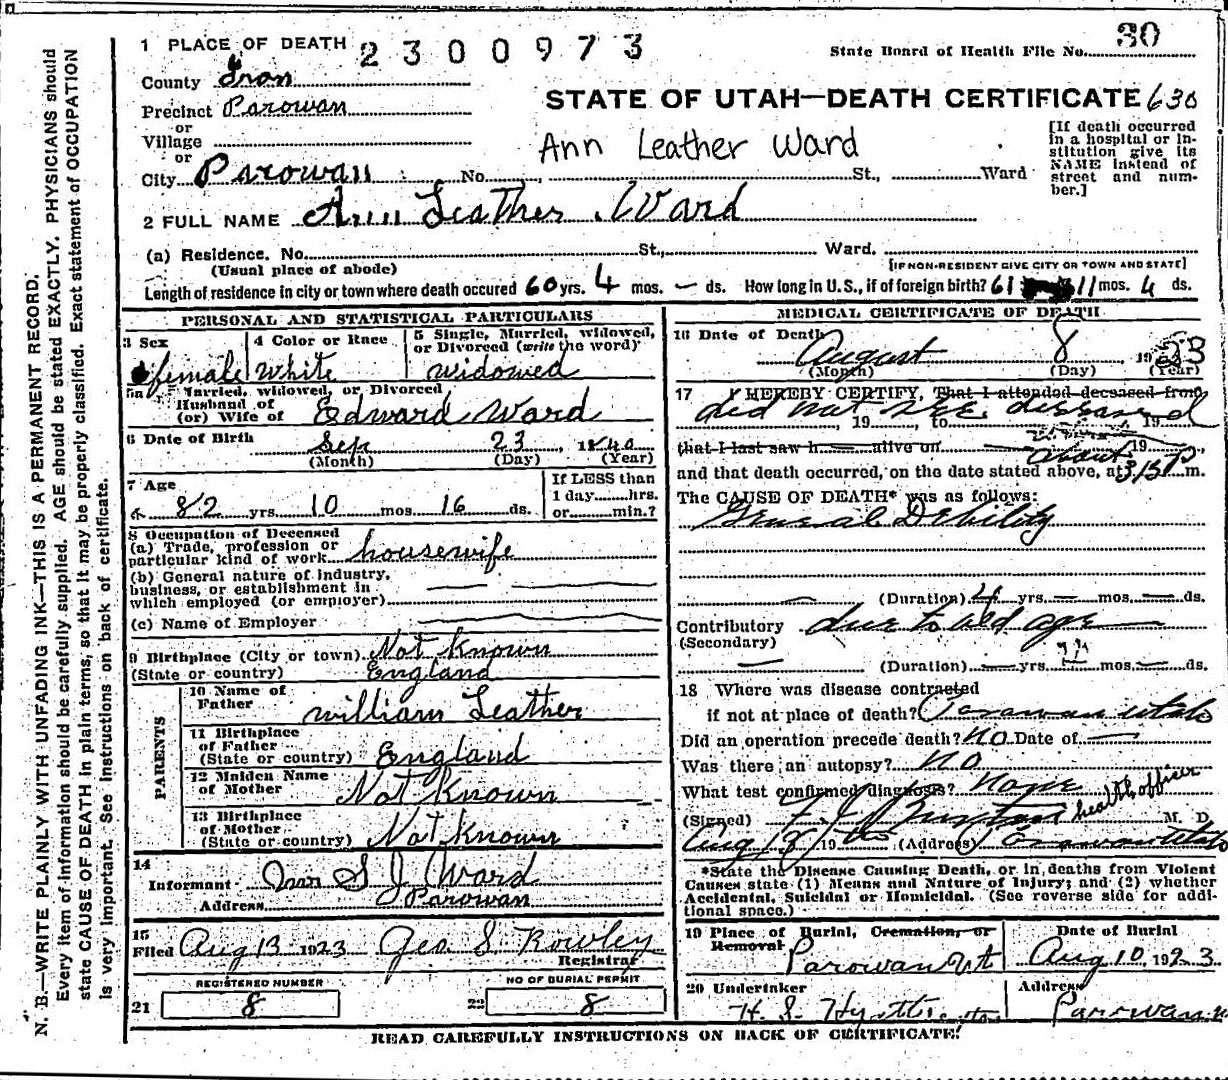 1 PLACE OF DEATH 2300973
State Board of Health File No. 30
County Iron
Precinct Parowan
STATE OF UTAH—DEATH CERTIFICATE 630
or
Village
or
Ann Leather Ward
[If death occurred in a hospital or institution give its NAME instead of street and number.]
City Parowan No. St., Ward
2 FULL NAME Ann Leather Ward
(a) Residence. No. St., Ward.
(Usual place of abode) [IF NON-RESIDENT GIVE CITY OR TOWN AND STATE]
Length of residence in city or town where death occured 60 yrs. 4 mos. — ds. How long in U.S., if of foreign birth? 61 11 mos. 4 ds.
PERSONAL AND STATISTICAL PARTICULARS
3 Sex
female
4 Color or Race
White
5 Single, Married, widowed, or Divorced (write the word)
widowed
5a Married, widowed, or Divorced
Husband of
(or) Wife of Edward Ward
6 Date of Birth Sep 23, 1840
(Month) (Day) (Year)
7 Age
82 yrs. 10 mos. 16 ds.
If LESS than
1 day......hrs.
or......min.?
8 Occupation of Deceased
(a) Trade, profession or
particular kind of work housewife
(b) General nature of industry,
business, or establishment in
which employed (or employer)
(c) Name of Employer
9 Birthplace (City or town) Not Known
(State or country) England
PARENTS
10 Name of
Father William Leather
11 Birthplace
of Father
(State or country) England
12 Maiden Name
of Mother Not Known
13 Birthplace
of Mother
(State or country) Not Known
14
Informant S J Ward
Address Parowan
15
Filed Aug 13 1923 Geo. S. Rowley
Registrar
REGISTERED NUMBER
21 8
NO OF BURIAL PERMIT
22 8
MEDICAL CERTIFICATE OF DEATH
16 Date of Death
August 8 1923
(Month) (Day) (Year)
17 I HEREBY CERTIFY, That I attended deceased from
did not see deceased
, 19 , to , 19
that I last saw h alive on 19
about
and that death occurred, on the date stated above, at 3.15 P m.
The CAUSE OF DEATH* was as follows:
General Debility
(Duration) 4 yrs. — mos. — ds.
Contributory due to old age
(Secondary)
(Duration) — yrs. — mos. — ds.
18 Where was disease contracted
if not at place of death? Parowan Utah
Did an operation precede death? No Date of —
Was there an autopsy? No
What test confirmed diagnosis? None
(Signed) health officer M. D.
Aug 19 (Address) Parowan Utah
*State the Disease Causing Death, or in deaths from Violent
Causes state (1) Means and Nature of Injury; and (2) whether
Accidental, Suicidal or Homicidal. (See reverse side for additional space.)
19 Place of Burial, Cremation, or
Removal
Parowan Ut
Date of Burial
Aug 10, 1923
20 Undertaker
Address
Parowan
READ CAREFULLY INSTRUCTIONS ON BACK OF CERTIFICATE!
N. B.—WRITE PLAINLY WITH UNFADING INK—THIS IS A PERMANENT RECORD.
Every item of information should be carefully supplied. AGE should be stated EXACTLY. PHYSICIANS should
state CAUSE OF DEATH in plain terms, so that it may be properly classified. Exact statement of OCCUPATION
is very important. See Instructions on back of certificate.